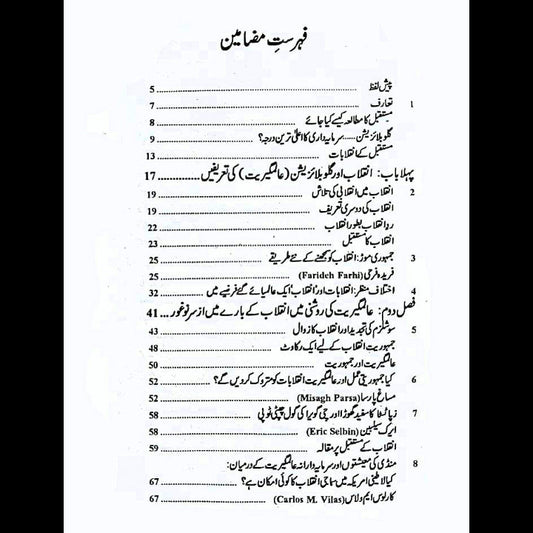 فہرستِ مضامین
پیش لفظ 5
1 تعارف 7
مستقبل کا مطالعہ کیسے کیا جائے 8
گلوبلائزیشن..... سرمایہ داری کا اعلیٰ ترین درجہ؟ 9
مستقبل کے انقلابات 13
پہلا باب: انقلاب اور گلوبلائزیشن (عالمگیریت) کی تعریفیں 17
2 انقلاب میں انقلابی کی تلاش 19
انقلاب کی دوسری تعریف 19
ردِ انقلاب بطور انقلاب 22
انقلاب کا مستقبل 23
3 جمہوری موڑ: انقلاب کو سمجھنے کے نئے طریقے 25
فریدہ فرحی (Farideh Farhi) 25
4 اختلافِ منظر: انقلابات اور 'انقلاب' ایک عالمیائے گئے فریمیے میں 32
فصل دوم: عالمگیریت کی روشنی میں انقلاب کے بارے میں از سرِ نو غور ... 41
5 سوشلزم کی تجدید اور انقلاب کا زوال 43
جمہوریت انقلاب کے لیے ایک رکاوٹ 48
عالمگیریت اور جمہوریت 50
6 کیا جمہوریتی عمل اور عالمگیریت انقلابات کو متروک کر دیں گے؟ 52
مساغ پارسا (Misagh Parsa) 52
7 زپاٹسٹا کا سفید گھوڑا اور چی گویرا کی گول چپٹی ٹوپی 58
ایرک سیلبین (Eric Selbin) 58
انقلاب کے مستقبل پر مقالہ 59
8 منڈی کی معیشتوں اور سرمایہ دارانہ عالمگیریت کے درمیان:
کیا لاطینی امریکہ میں سماجی انقلاب کا کوئی امکان ہے؟ 67
کارلوس ایم ولاس (Carlos M. Vilas) 67